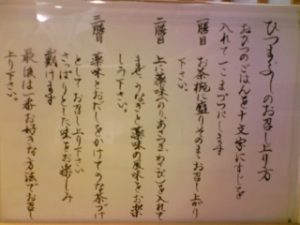 ひつまぶしのお召し上り方
おひつのごはんを十文字にすじを
入れて一こまづつにします
一膳目 お茶椀に盛りそのままお召し上がり
下さい。
二膳目 上に薬味(のり、あさつき、わさび)を入れて
まぜ、うなぎと薬味の風味をお楽
しみ下さい。
三膳目 薬味とおだしをかけてうな茶づけ
としてお召し上り下さい
さっぱりとした味をお楽しみ
戴けます
最後は一番お好きな方法でお召し
上り下さい。